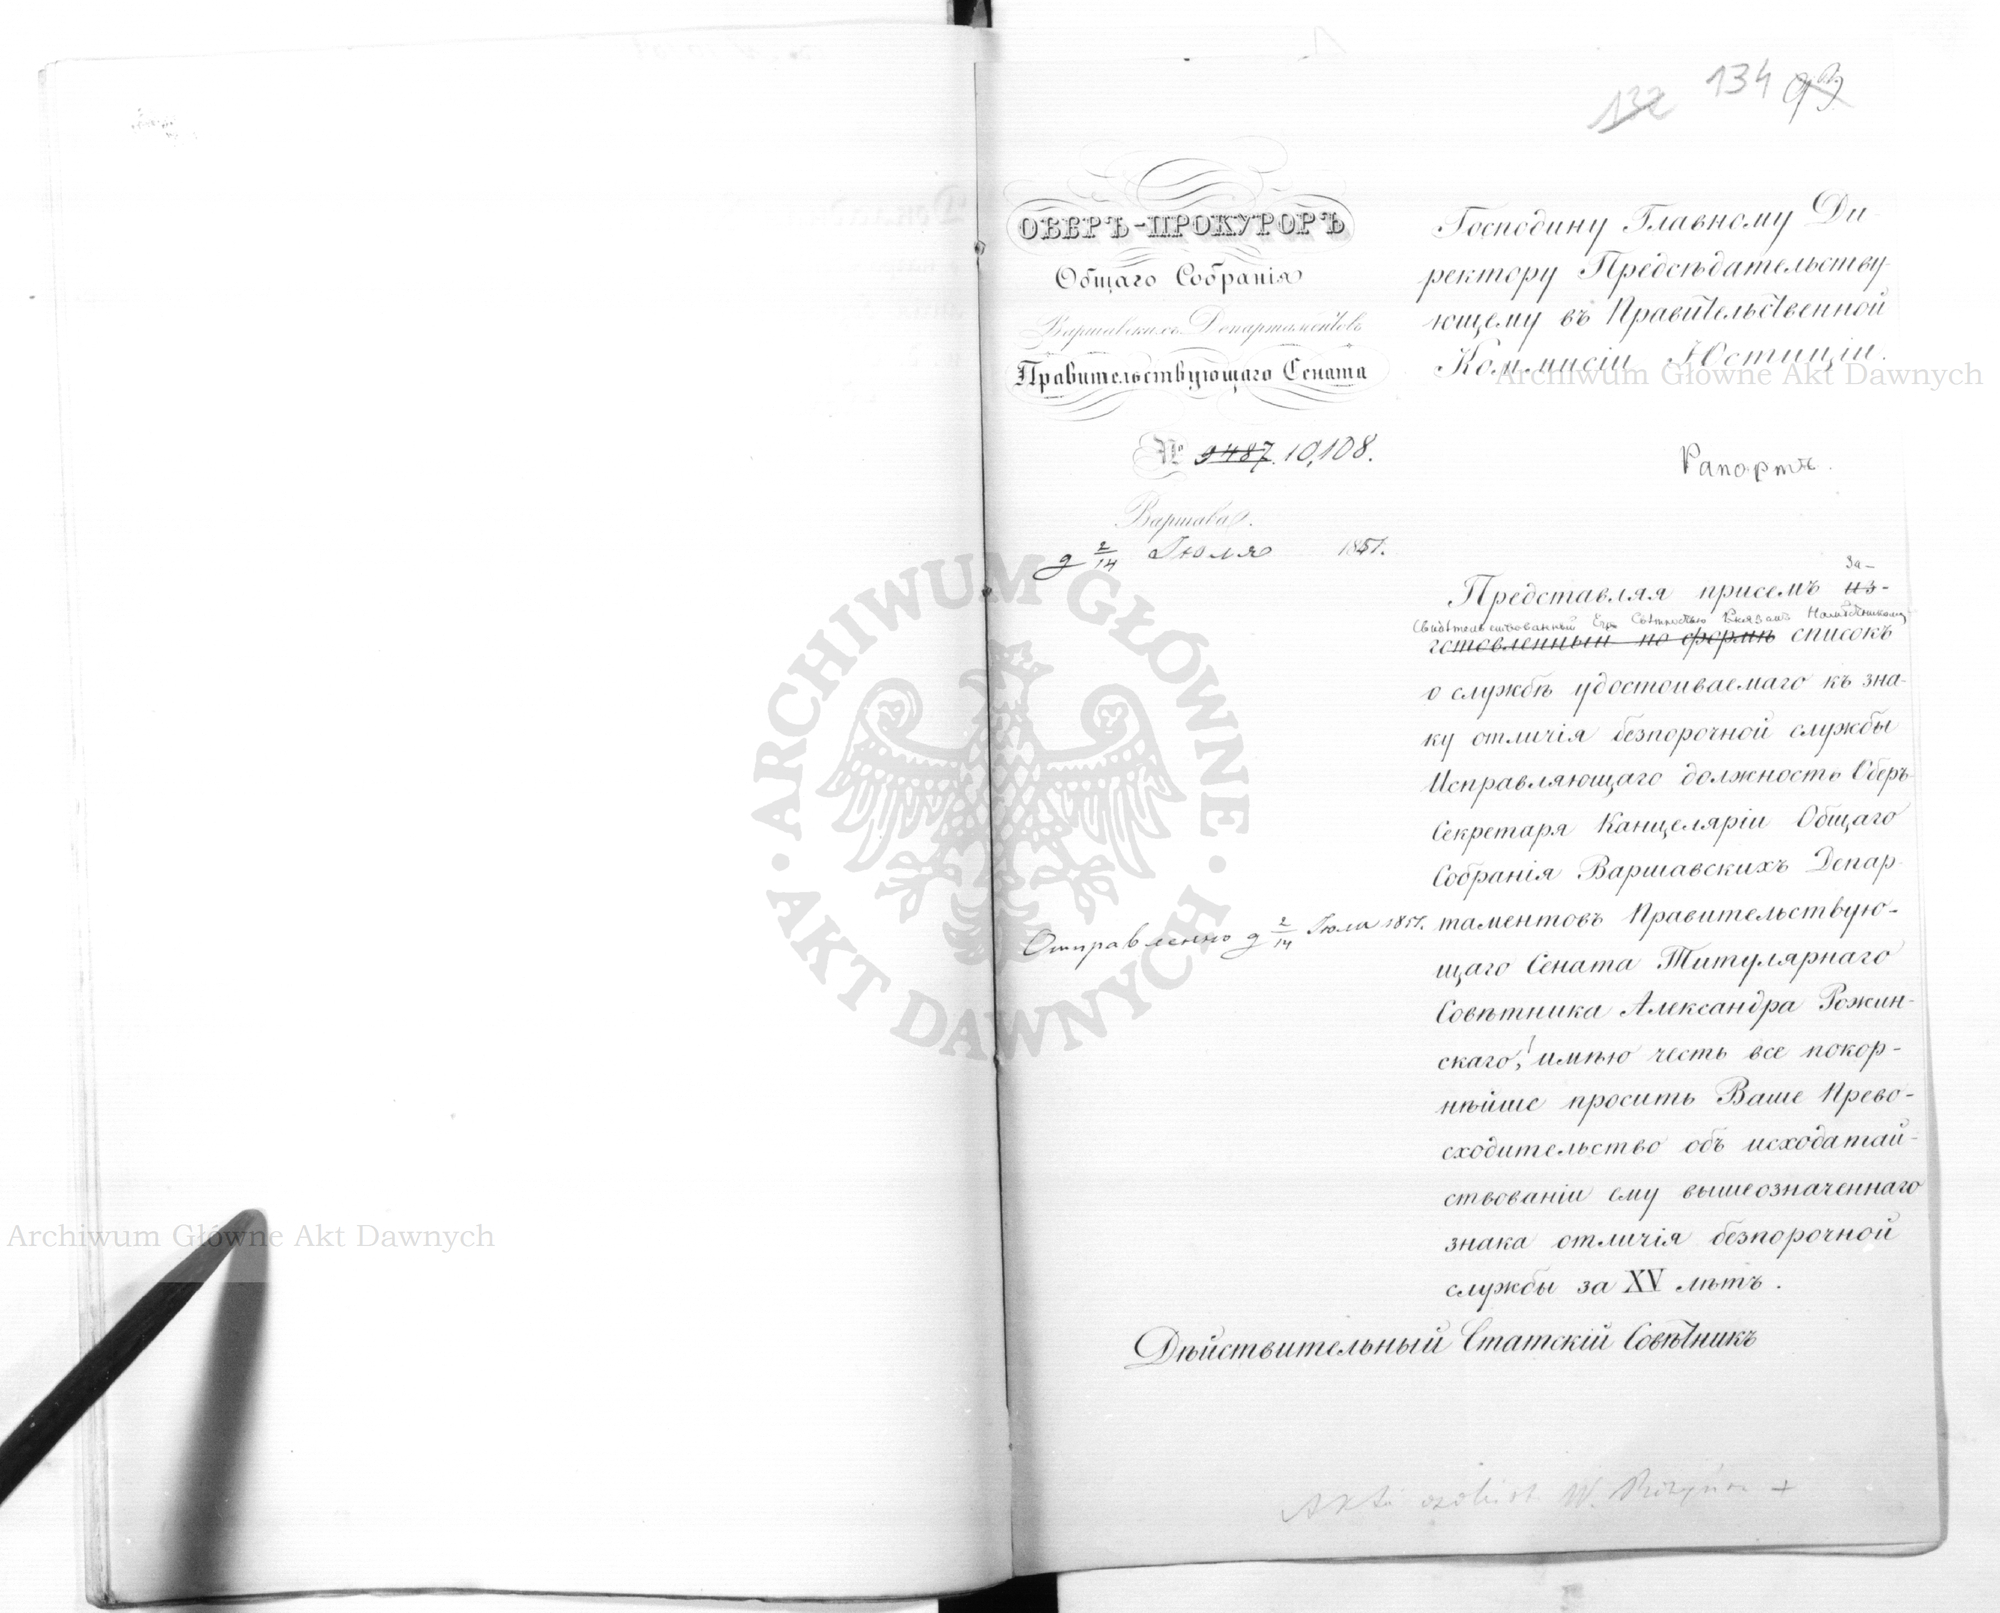 132 134 93
ОБЕРЪ-ПРОКУРОРЪ
Общаго Собранія
Варшавскихъ Департаментовъ
Правительствующаго Сената
№ 9487. 10,108.
Варшава.
д 2/14 Іюля 1851.
Отправленно д 2/14 Іюля 1851.
Господину Главному Ди-
ректору Предсѣдательству-
ющему въ Правительственной
Коммисіи Юстиціи.
Рапортъ.
За-
Представляя присемъ из-
свидѣтельствованный Его Свѣтлостью Княземъ Намѣстникомъ
готовленный по формѣ списокъ
о службѣ удостоиваемаго къ зна-
ку отличія безпорочной службы
Исправляющаго должность Оберъ-
Секретаря Канцеляріи Общаго
Собранія Варшавскихъ Депар-
таментовъ Правительствую-
щаго Сената Титулярнаго
Совѣтника Александра Рожин-
скаго, имѣю честь все покор-
нѣйше просить Ваше Прево-
сходительство объ исходатай-
ствованіи ему вышеозначеннаго
знака отличія безпорочной
службы за XV лѣтъ.
Дѣйствительный Статскій Совѣтникъ
Akta W.
Archiwum Główne Akt Dawnych
Archiwum Główne Akt Dawnych
ARCHIWUM GŁÓWNE · AKT DAWNYCH ·